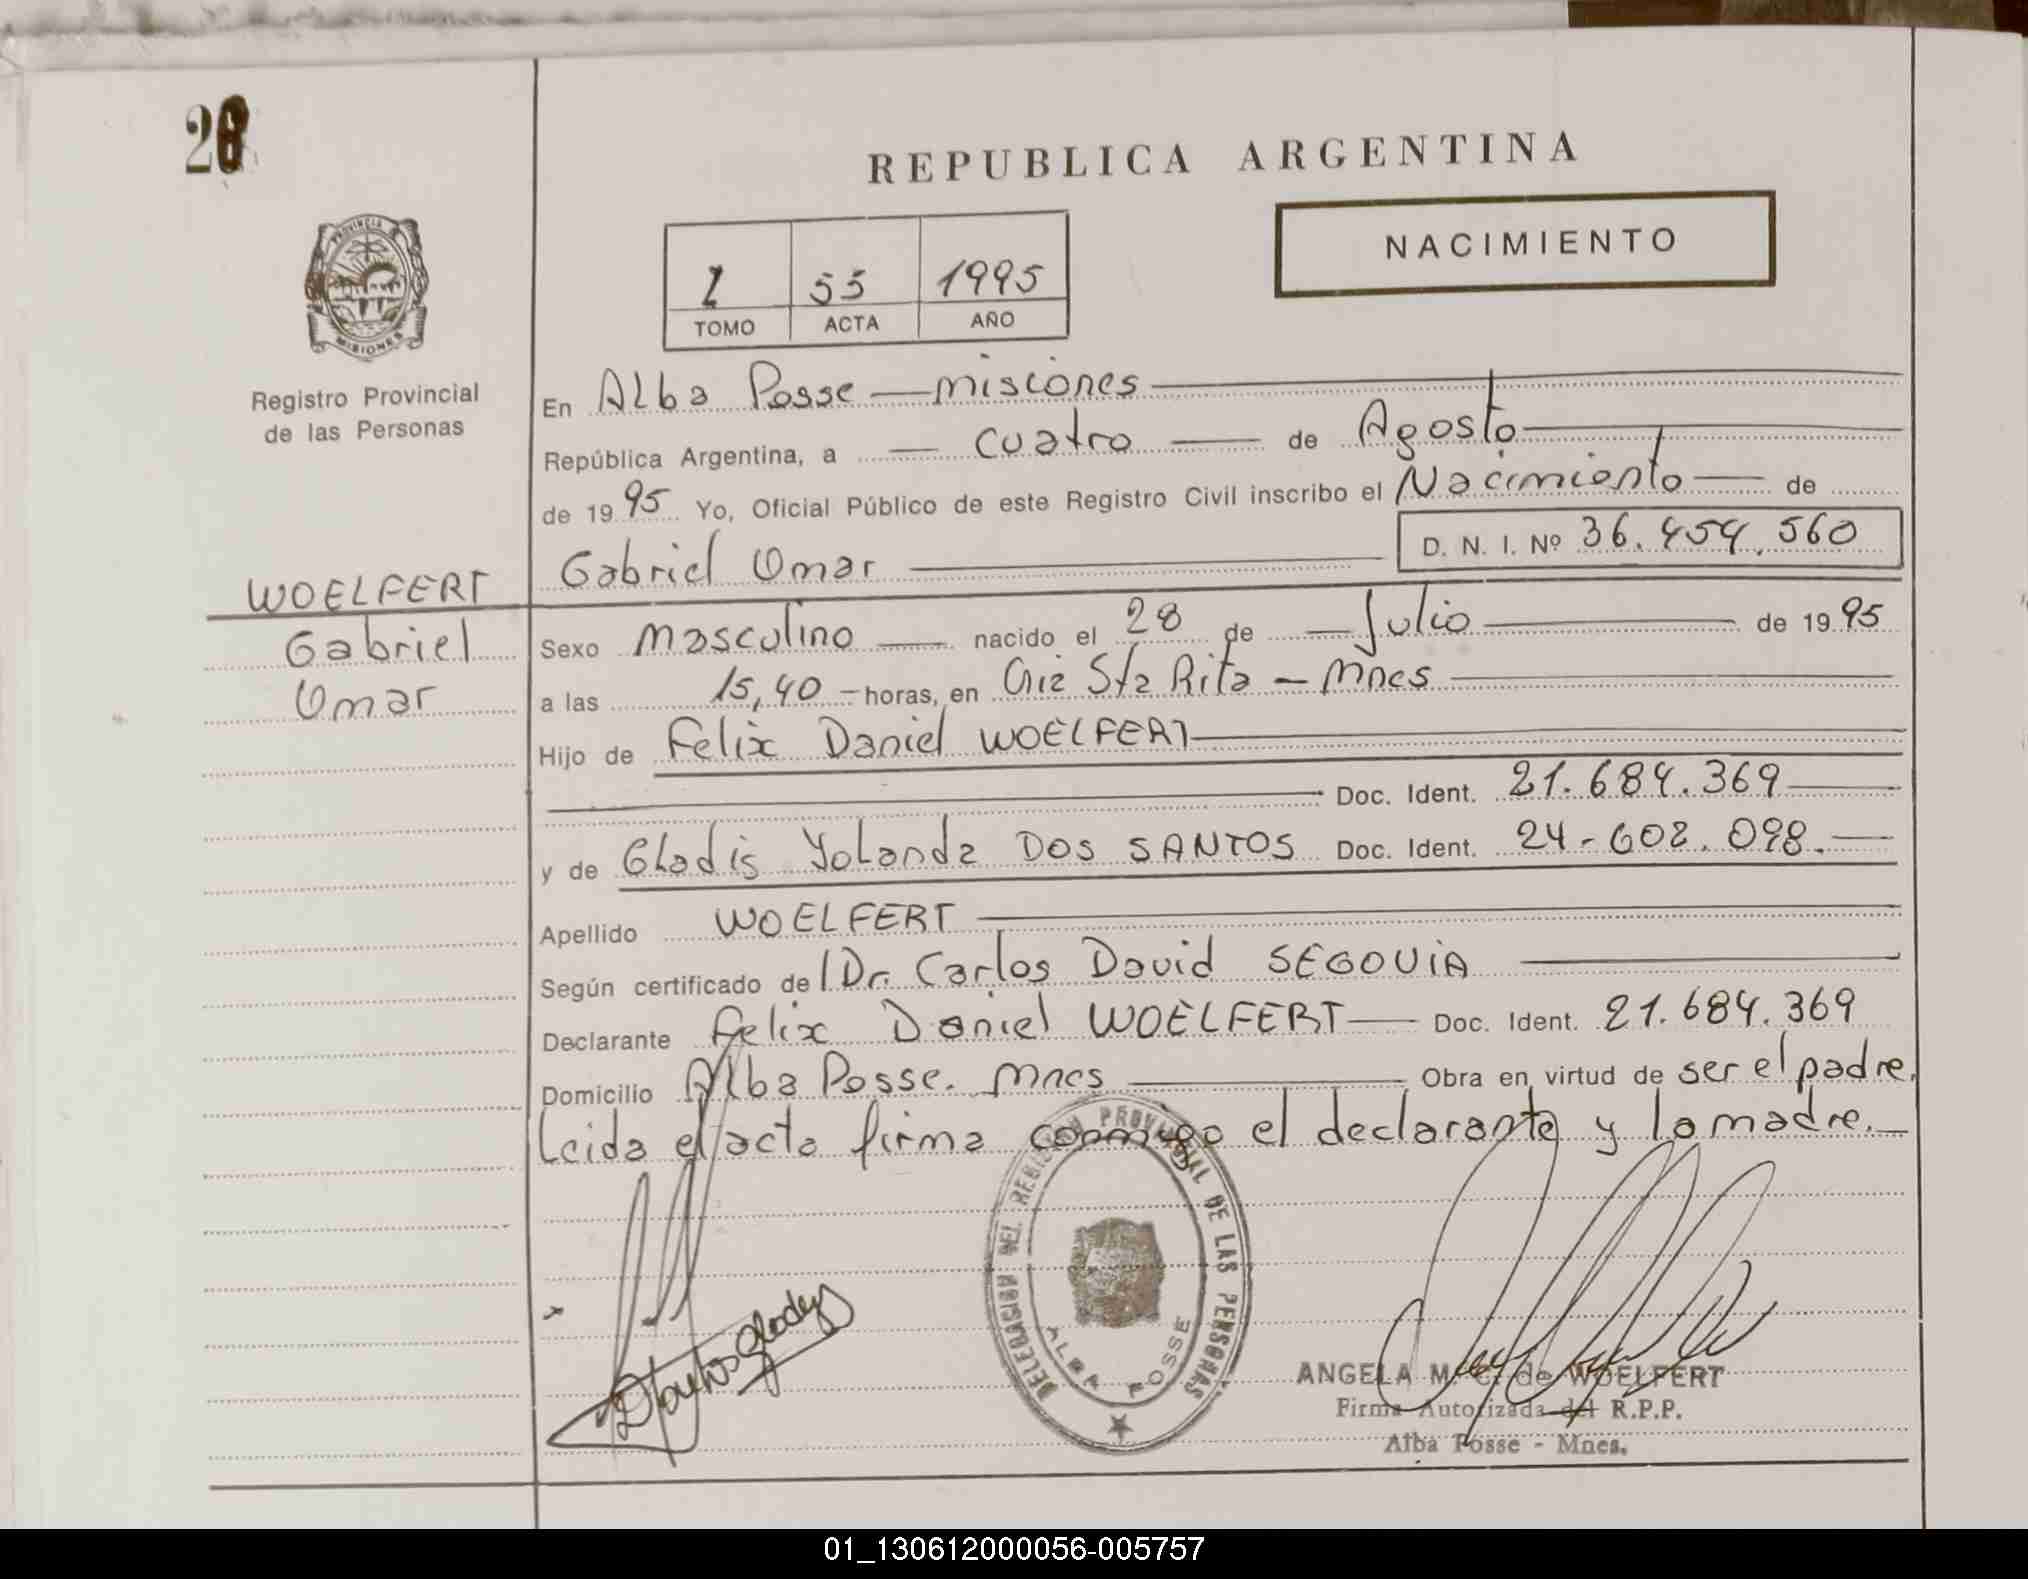 28
REPUBLICA ARGENTINA
NACIMIENTO
PROVINCIA
MISIONES
1 55 1995
TOMO ACTA AÑO
Registro Provincial
de las Personas
En Alba Posse — misiones
República Argentina, a — cuatro — de Agosto
de 1995 Yo, Oficial Público de este Registro Civil inscribo el Nacimiento — de
D. N. I. Nº 36.454.560
Gabriel Omar
WOELFERT
Gabriel
Omar
Sexo masculino — nacido el 28 de — Julio — de 1995
a las 15,40 - horas, en Sta Rita - Mnes
Hijo de Felix Daniel WOELFERT
Doc. Ident. 21.684.369
y de Gladis Yolanda DOS SANTOS Doc. Ident. 24-602.098.
Apellido WOELFERT
Según certificado de Dr. Carlos David SEGOVIA
Declarante Felix Daniel WOELFERT — Doc. Ident. 21.684.369
Domicilio Alba Posse. Mnes — Obra en virtud de ser el padre.
Leida el acta firma conmigo el declarante y la madre.
DELEGACION DEL REGISTRO PROVINCIAL DE LAS PERSONAS
ALBA POSSE
ANGELA M. C. de WOELFERT
Firma Autorizada del R.P.P.
Alba Posse - Mnes.
01_130612000056-005757